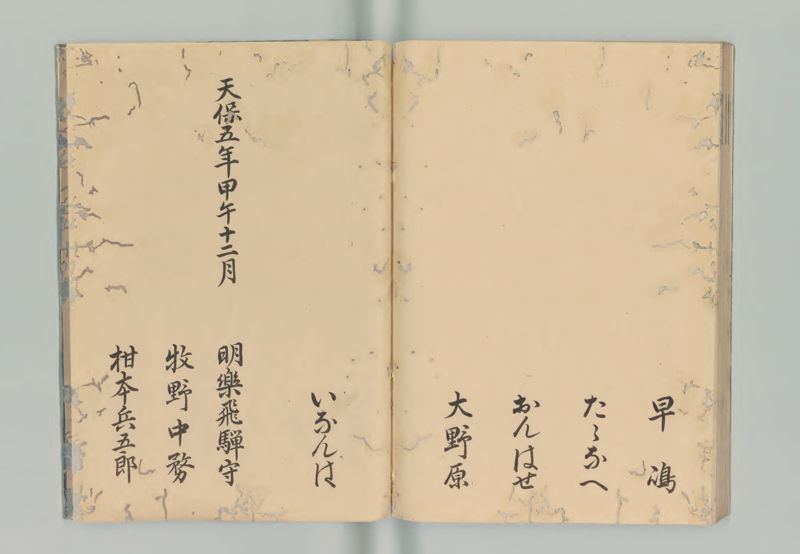 早嶋
たゝなへ
おんはせ
大野原
いなんは
天保五年甲午十二月
明樂飛騨守
牧野中務
柑本兵五郎